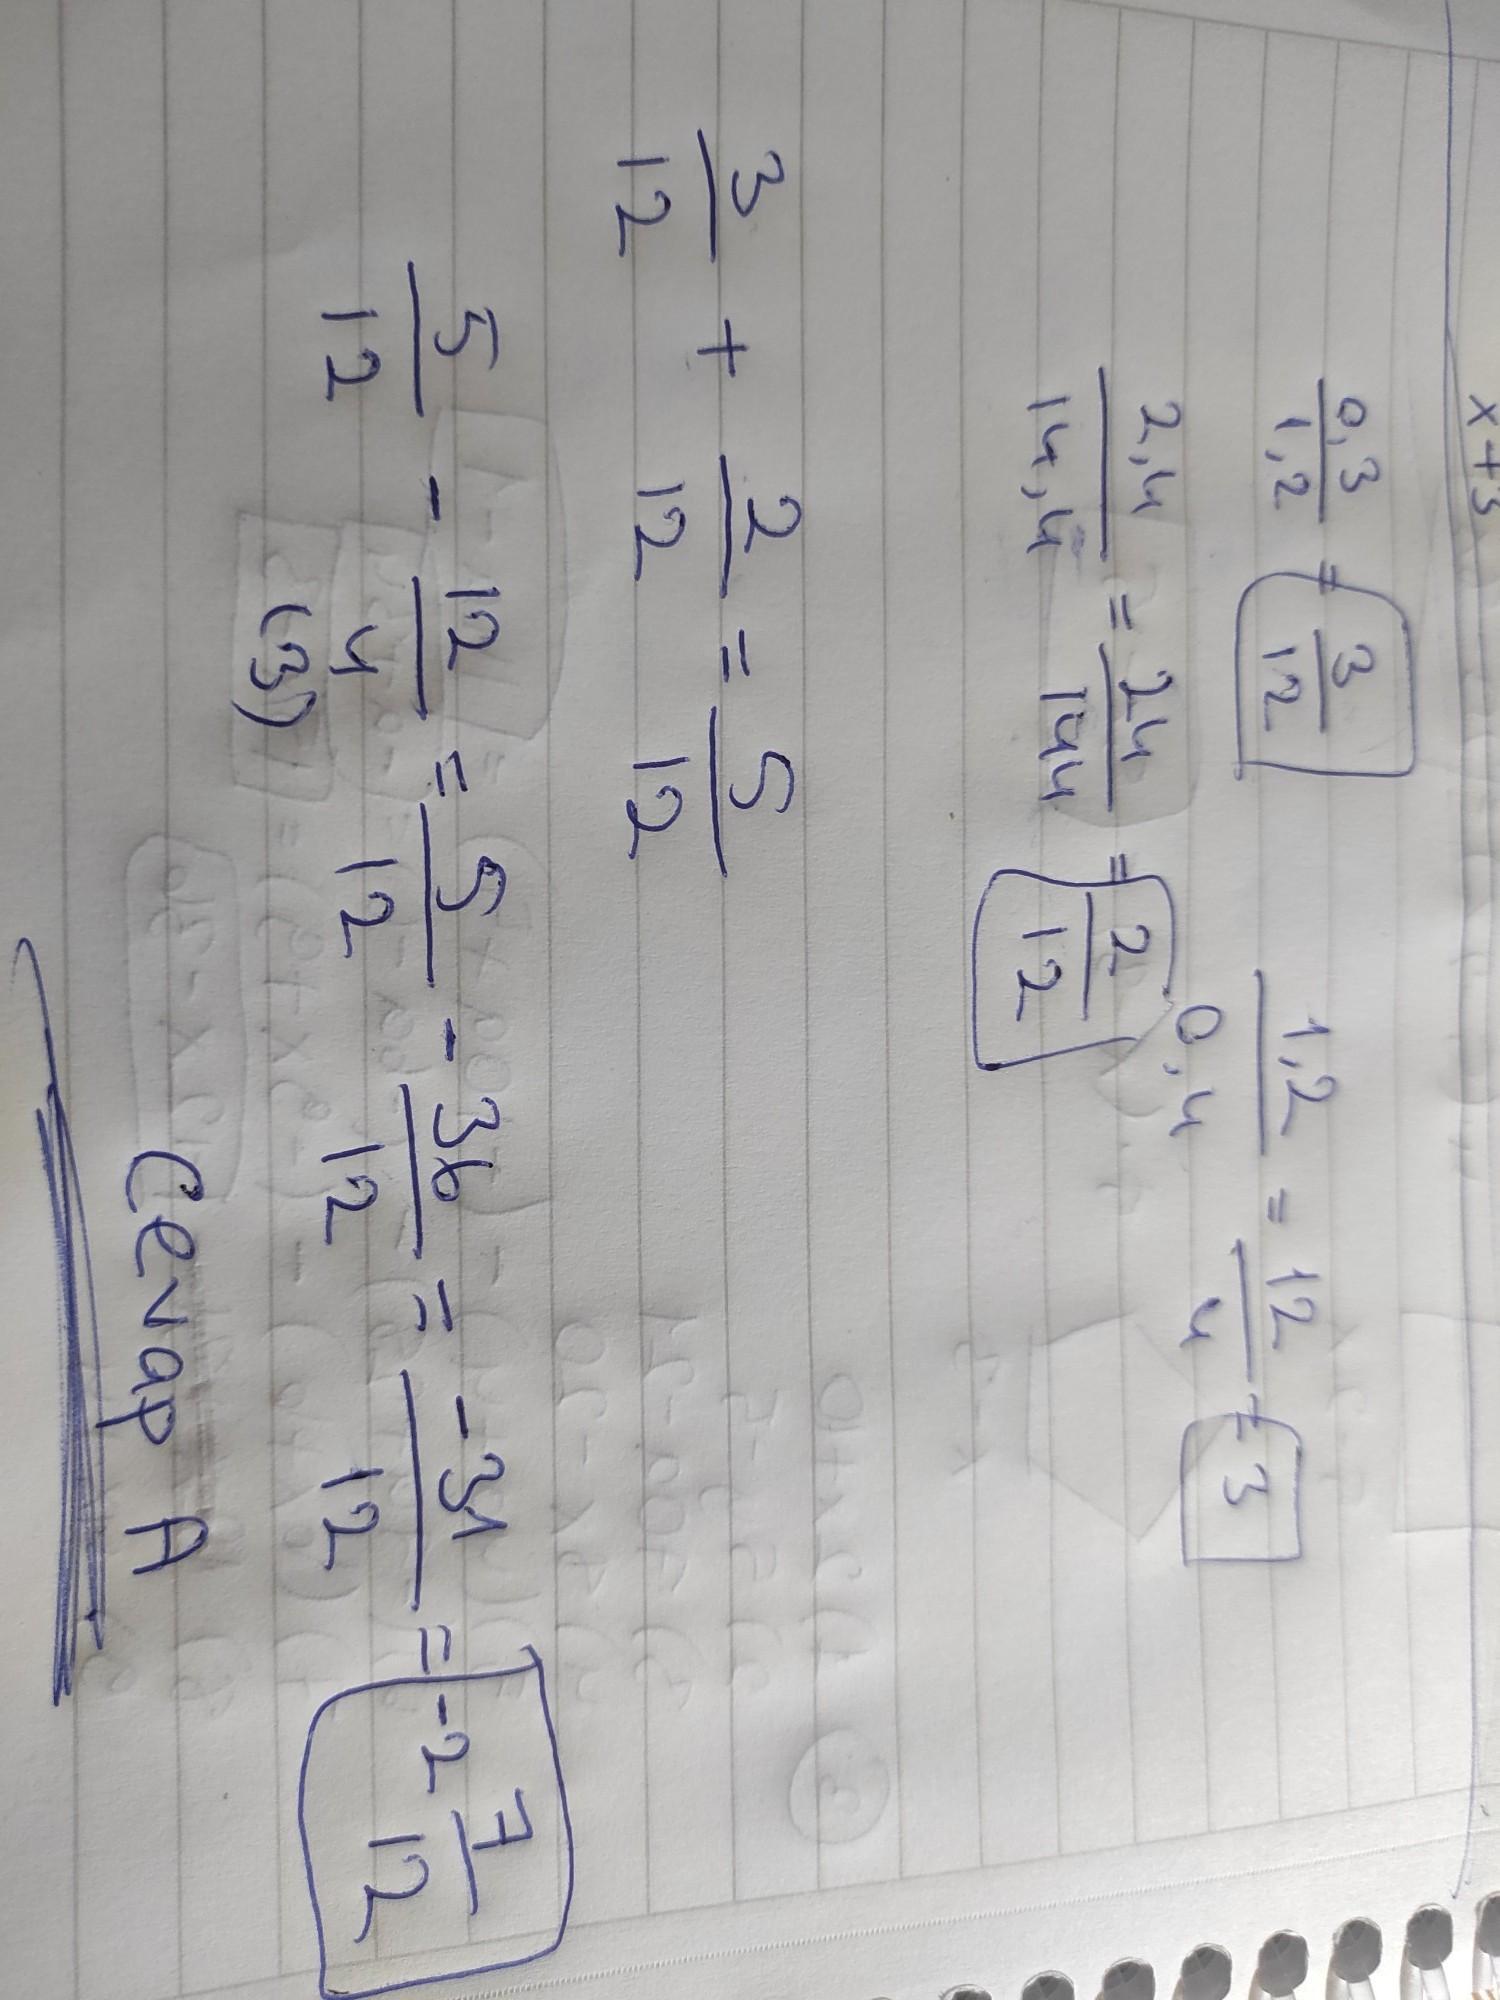 x+3
0,3/1,2 = 3/12    1,2/0,4 = 12/4 = 3
2,4/14,4 = 24/144 = 2/12
3/12 + 2/12 = 5/12
5/12 - 12/4 = 5/12 - 36/12 = -31/12 = -2 7/12
(3)
Cevap A